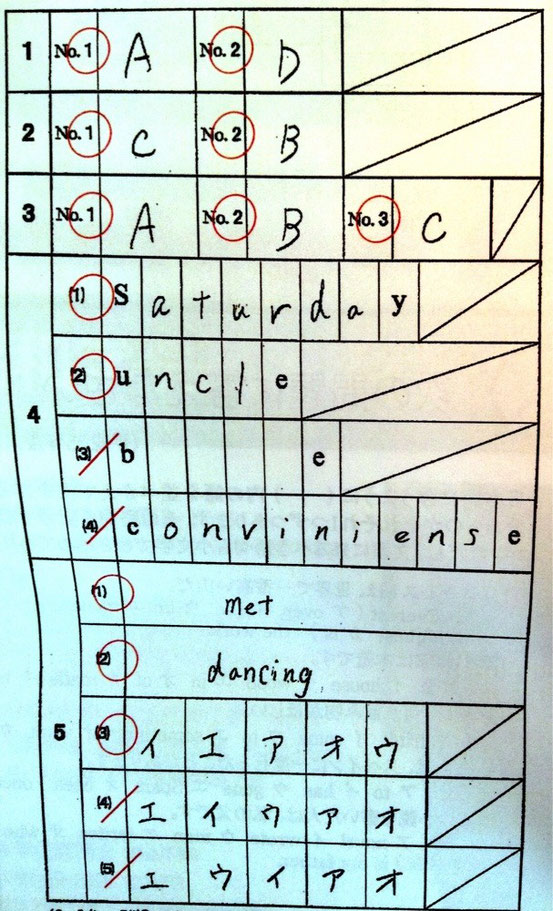 1 No.1 A No.2 D
2 No.1 C No.2 B
3 No.1 A No.2 B No.3 C
4 (1) Saturday
(2) uncle
(3) b e
(4) conviniense
5 (1) met
(2) dancing
(3) イ エ ア オ ウ
(4) エ イ ウ ア オ
(5) エ ウ イ ア オ